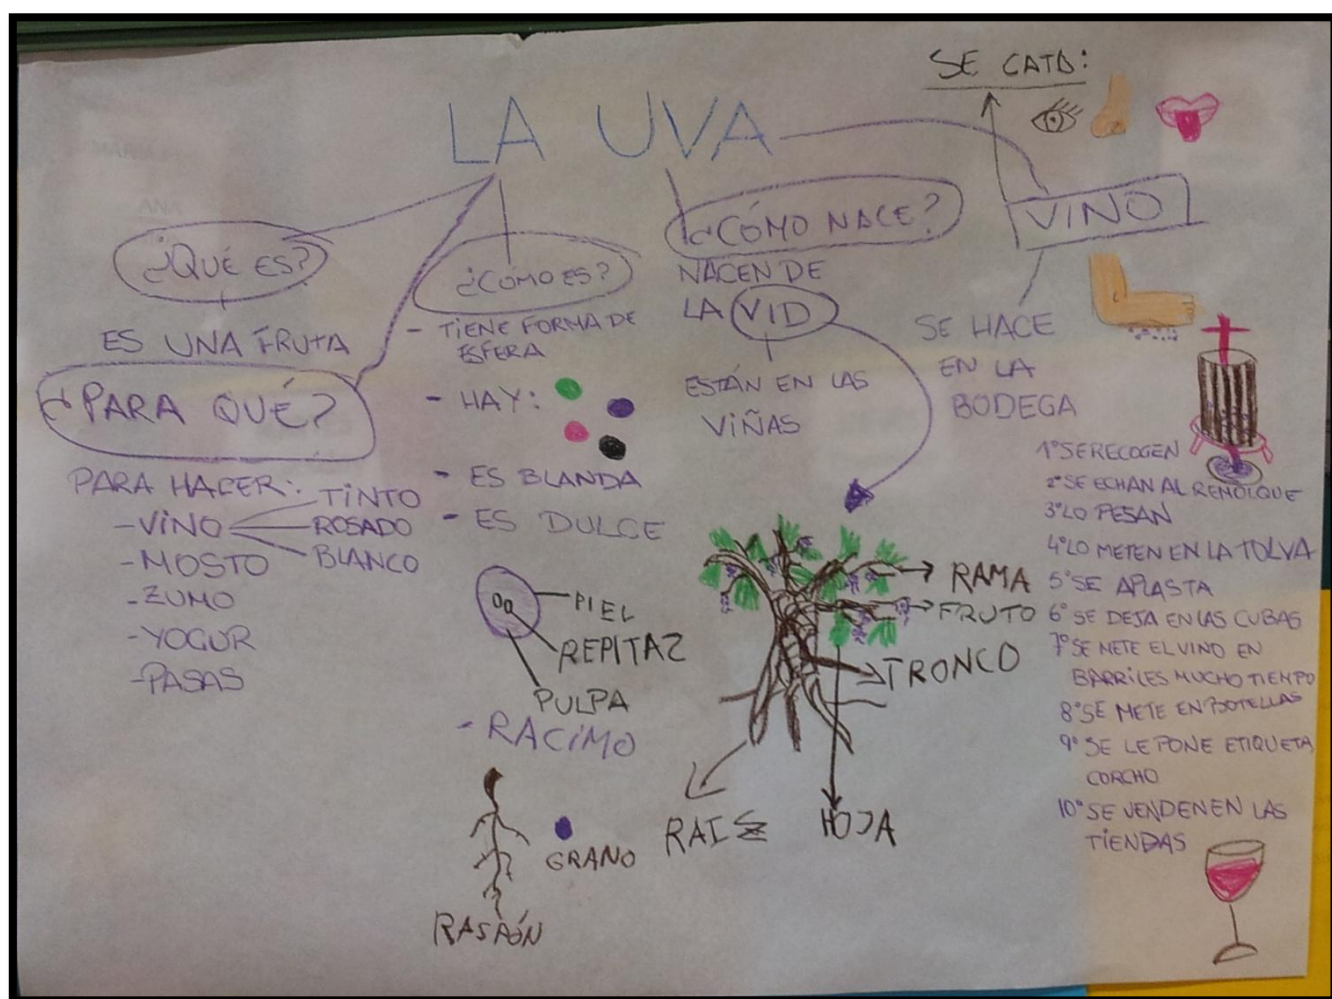 LA UVA
¿QUÉ ES?
ES UNA FRUTA
¿PARA QUÉ?
PARA HACER:
- VINO
TINTO
ROSADO
BLANCO
- MOSTO
- ZUMO
- YOGUR
- PASAS
¿CÓMO ES?
- TIENE FORMA DE
ESFERA
- HAY:
- ES BLANDA
- ES DULCE
PIEL
REPITAZ
PULPA
- RACIMO
GRANO
RASPÓN
¿CÓMO NACE?
NACEN DE
LA VID
ESTÁN EN LAS
VIÑAS
RAMA
FRUTO
TRONCO
RAIZ
HOJA
SE CATA:
VINO
SE HACE
EN LA
BODEGA
1º SE RECOGEN
2º SE ECHAN AL REMOLQUE
3º LO PESAN
4º LO METEN EN LA TOLVA
5º SE APLASTA
6º SE DEJA EN LAS CUBAS
7º SE METE EL VINO EN
BARRILES MUCHO TIEMPO
8º SE METE EN BOTELLAS
9º SE LE PONE ETIQUETA
CORCHO
10º SE VENDEN EN LAS
TIENDAS
ANA